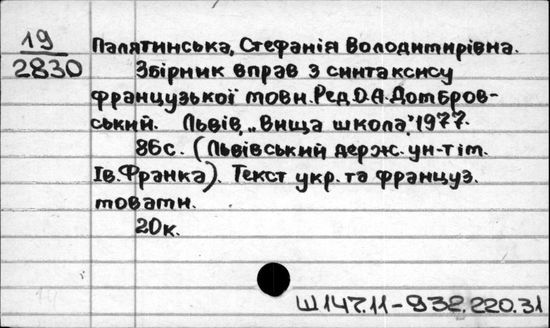 19
2830
Палятинська, Стефанія Володимирівна.
Збірник вправ з синтаксису
французької мови. Ред. О.А. Домбров-
ський. Львів, „Вища школа", 1977.
86с. (Львівський держ. ун-т ім.
Ів. Франка). Текст укр. та француз.
мовами.
20к.
Ш147.11-932.220.31